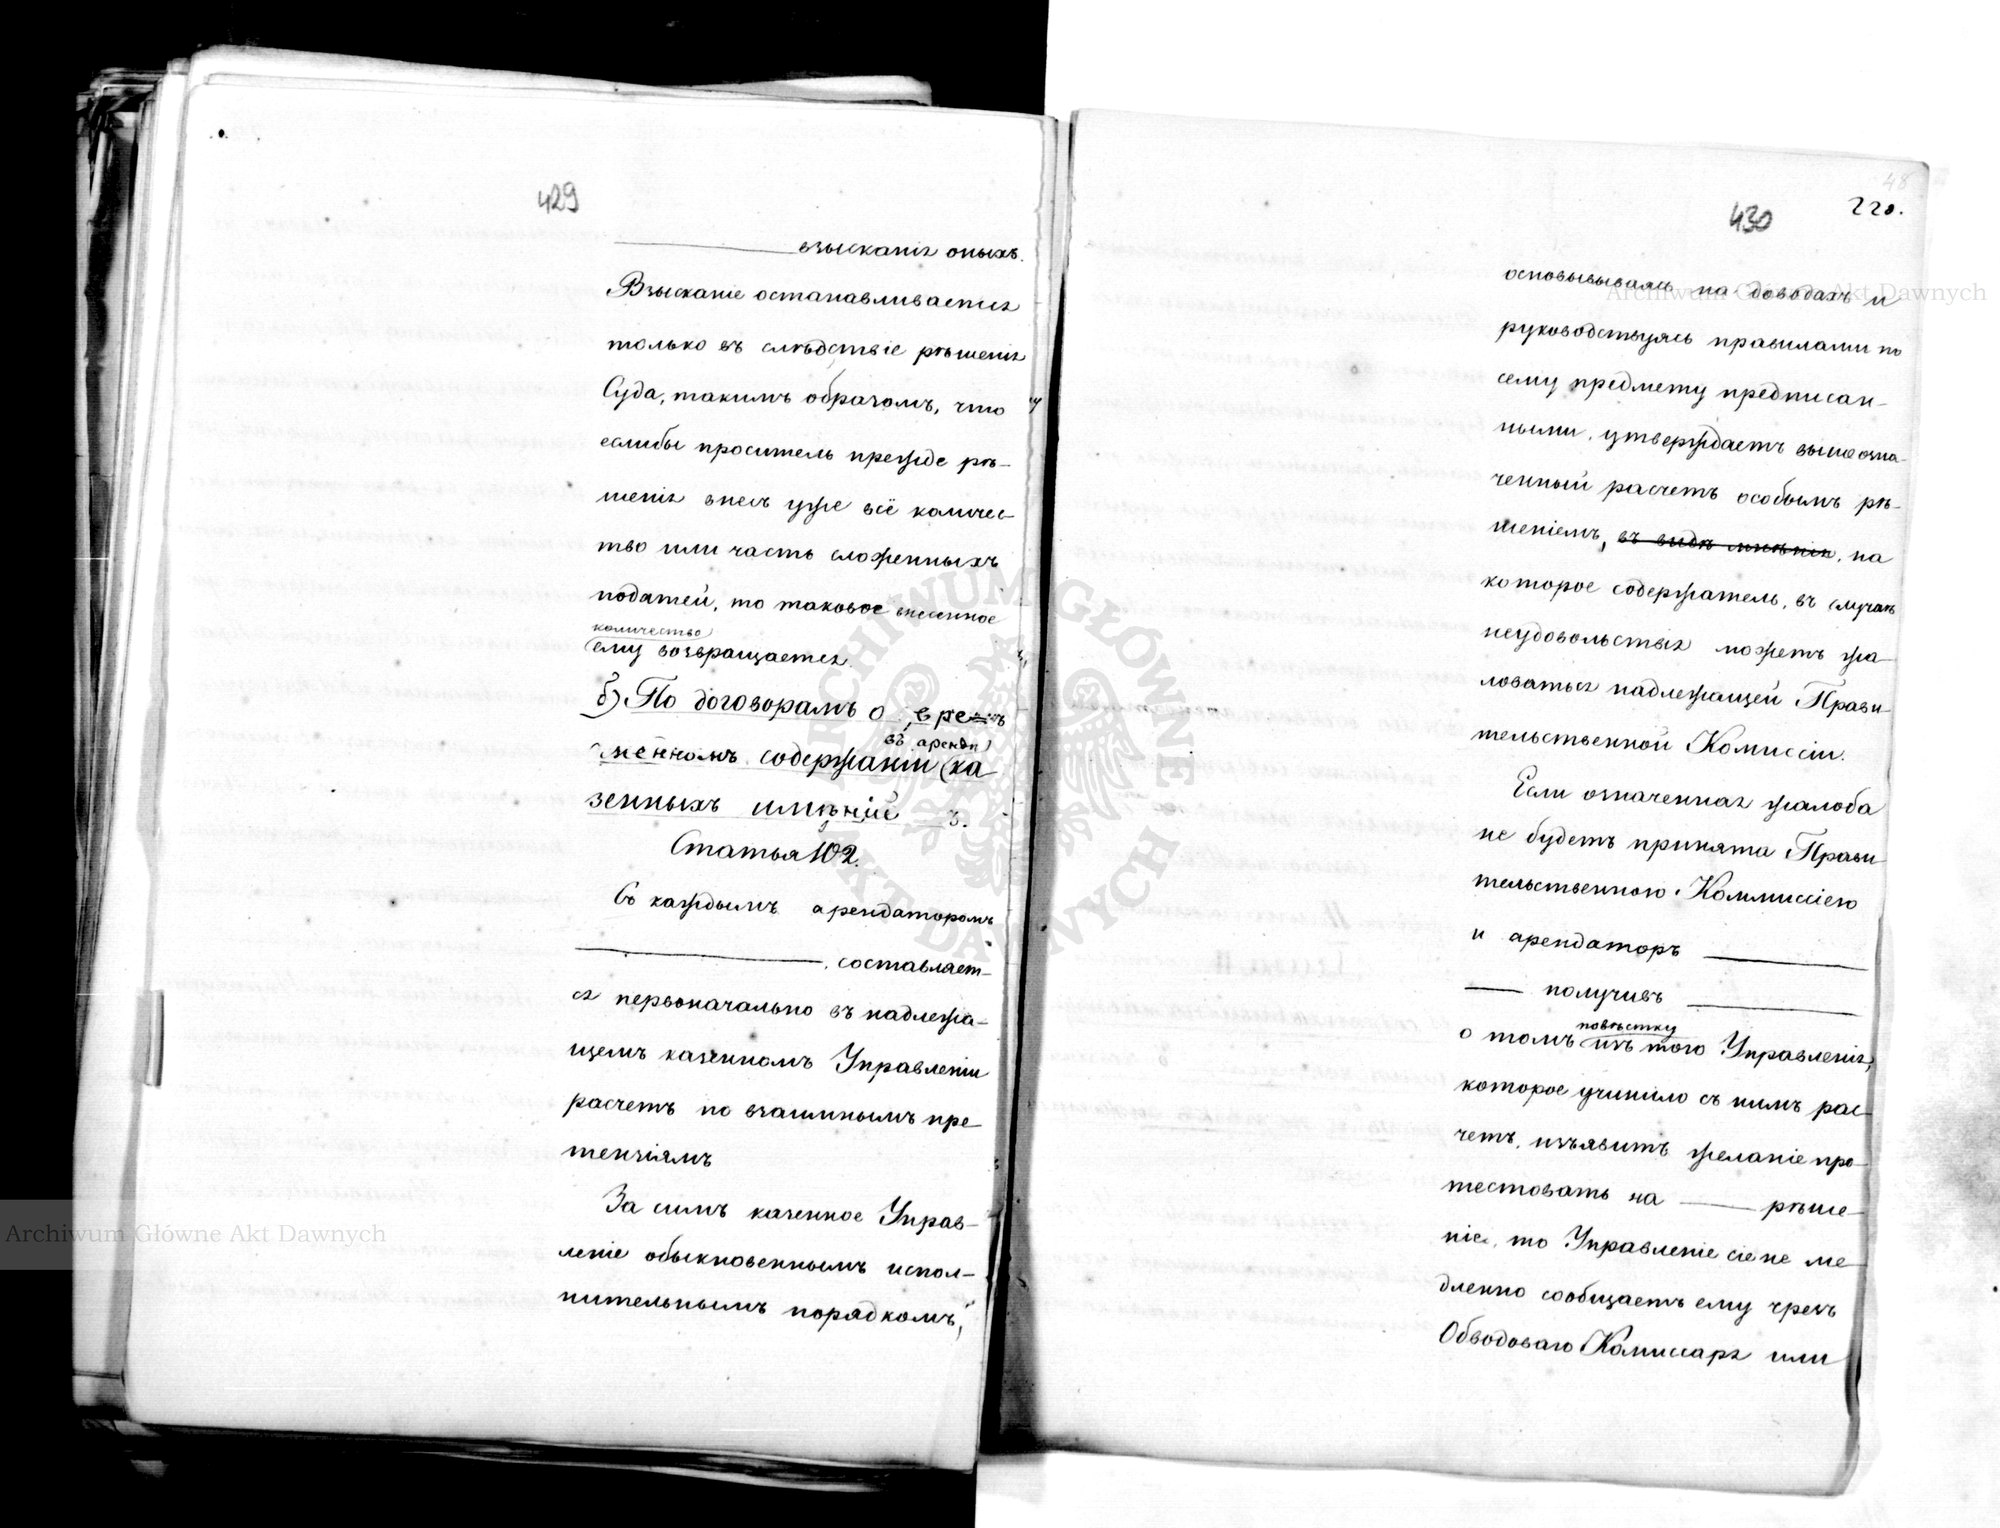 429
взысканія оныхъ.
Взысканіе останавливается
только въ слѣдствіе рѣшенія
Суда, такимъ образомъ, что
еслибы проситель прежде рѣ-
шенія внесъ уже всё количес-
тво или часть сложенныхъ
податей, то таковое внесенное
количество
ему возвращается.
б) По договорамъ о вре=
въ аренд
менномъ содержаніи ка
зенныхъ имѣній
Статья 102.
Съ каждымъ арендаторомъ
составляет-
ся первоначально въ надлежа-
щемъ казенномъ Управленіи
расчетъ по взаимнымъ пре-
тензіямъ
За симъ казенное Управ-
леніе обыкновеннымъ испол-
нительнымъ порядкомъ,
48
430
220.
основываясь на доводахъ и
руководствуясь правилами по
сему предмету предписан-
ными, утверждаетъ вышеозна-
ченный расчетъ особымъ рѣ-
шеніемъ, въ видѣ мнѣнія, на
которое содержатель, въ случаѣ
неудовольствія можетъ жа-
ловаться надлежащей Прави-
тельственной Комиссіи.
Если означенная жалоба
не будетъ принята Прави
тельственною Коммиссіею
и арендаторъ
получивъ
повѣстку
о томъ изъ того Управленія,
которое учинило съ нимъ рас-
четъ, изъявитъ желаніе про-
тестовать на рѣше-
ніе, то Управленіе сіе не ме-
дленно сообщаетъ ему чрезъ
Обводоваго Комиссара или
Archiwum Główne Akt Dawnych
Archiwum Główne Akt Dawnych
ARCHIWUM GŁÓWNE
AKT DAWNYCH